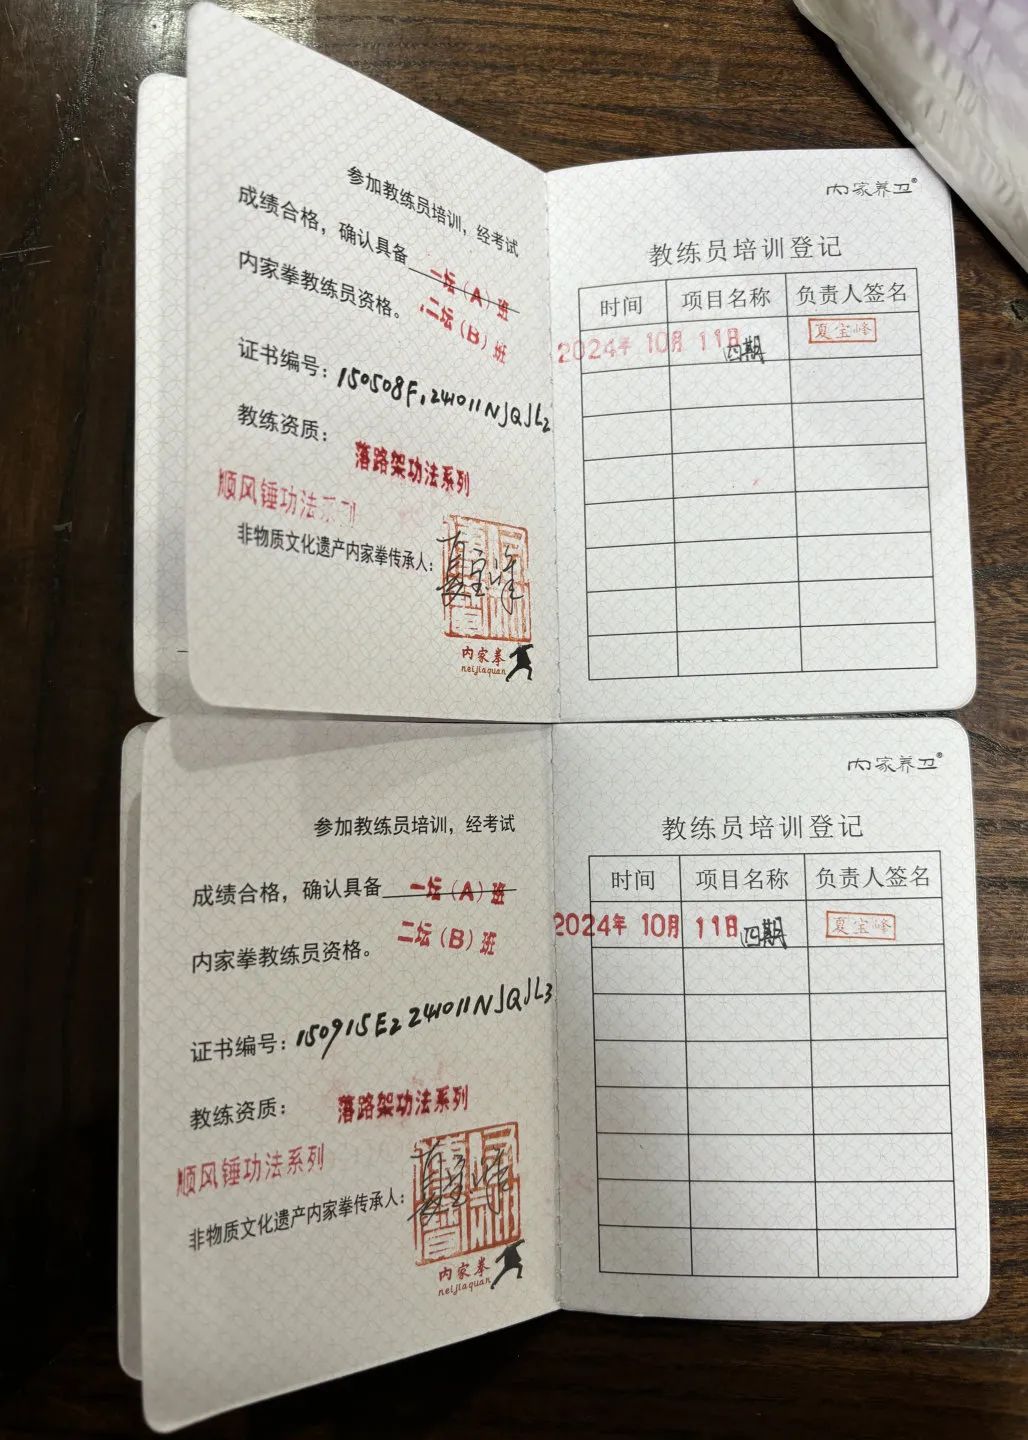 参加教练员培训，经考试
成绩合格，确认具备 一坛（A）班
内家拳教练员资格。 二坛（B）班
证书编号：150508F，241011NJQJL2
教练资质： 落路架功法系列
顺风锤功法系列
非物质文化遗产内家拳传承人：
夏宝峰
内家拳
neijiaquan
内家养卫®
教练员培训登记
时间 项目名称 负责人签名
2024年 10月 11日 四期 夏宝峰
参加教练员培训，经考试
成绩合格，确认具备 一坛（A）班
内家拳教练员资格。 二坛（B）班
证书编号：150915E2 241011NJQJL3
教练资质： 落路架功法系列
顺风锤功法系列
非物质文化遗产内家拳传承人：
夏宝峰
内家拳
neijiaquan
内家养卫®
教练员培训登记
时间 项目名称 负责人签名
2024年 10月 11日 四期 夏宝峰